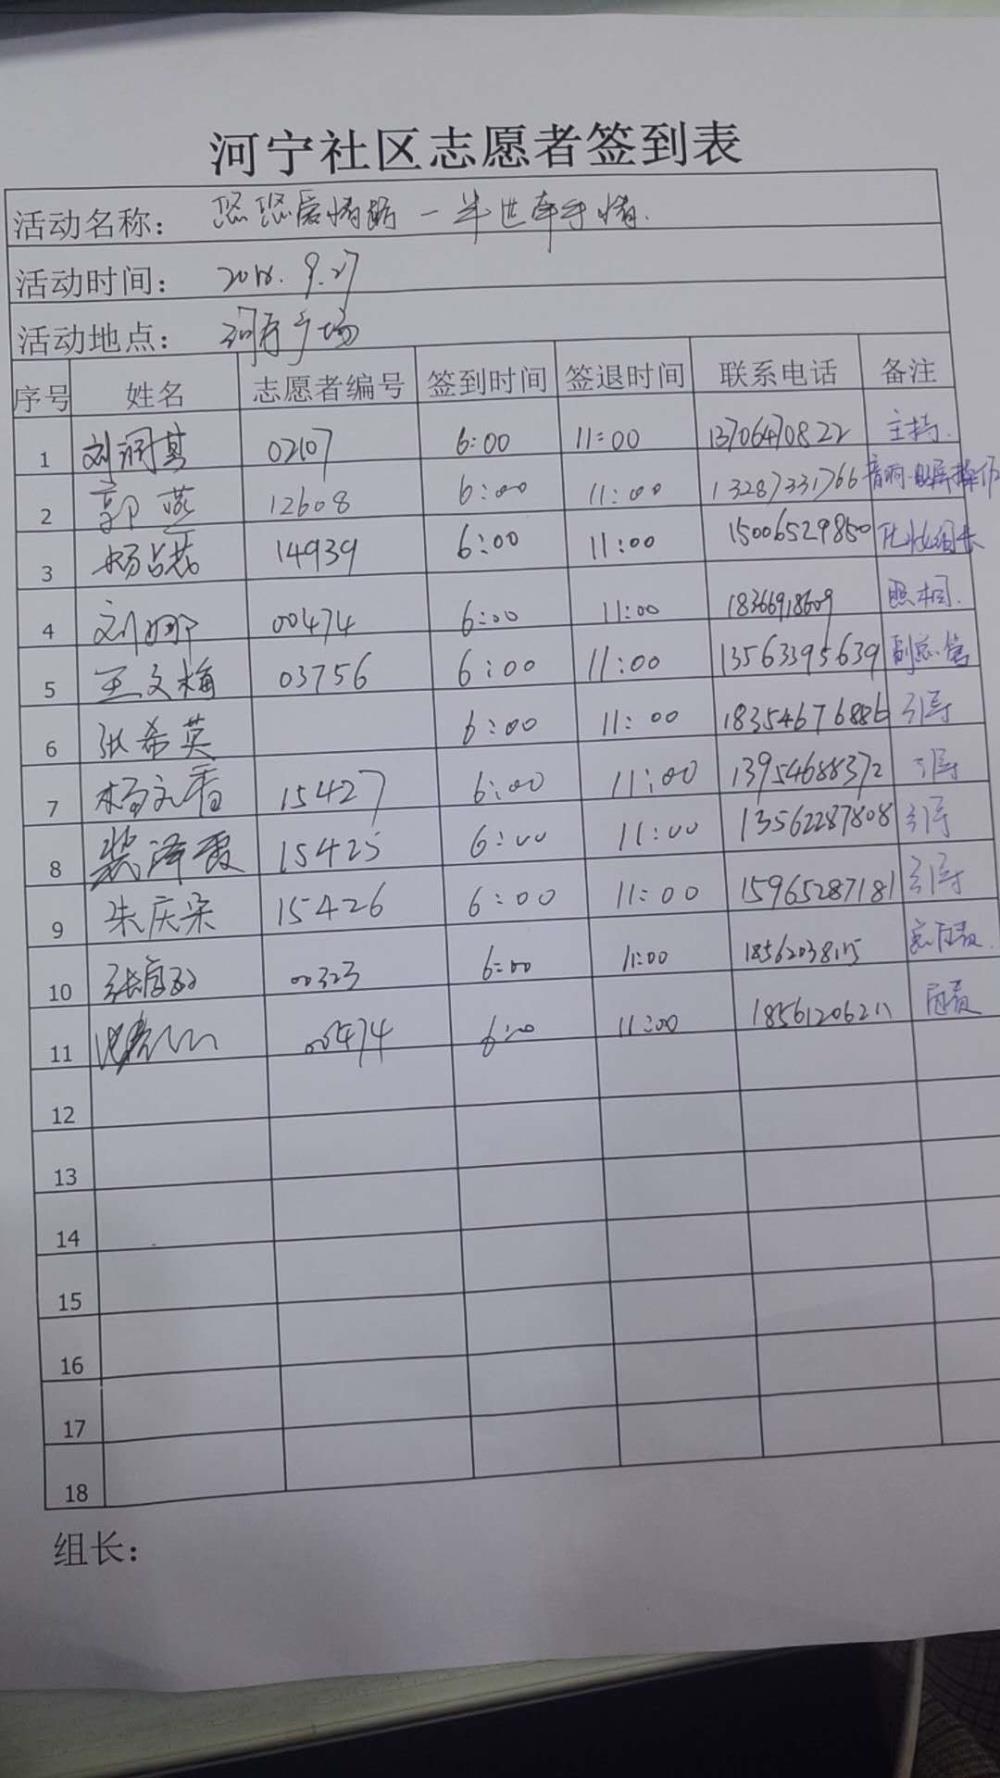 河宁社区志愿者签到表
活动名称： 悠悠爱情路一半世牵手情.
活动时间： 9.27
活动地点： 河宁广场
序号 姓名 志愿者编号 签到时间 签退时间 联系电话 备注
1 刘润其 02107 6:00 11:00 13706470822 主持.
2 郭燕 12608 6:00 11:00 13287331766 音响·电屏操作
3 杨占花 14939 6:00 11:00 15006529850 化妆组长
4 刘娜 00474 6:00 11:00 18366918609 照相.
5 王文梅 03756 6:00 11:00 13563395639 副总管
6 张希英 6:00 11:00 18354676886 引导
7 杨文香 15427 6:00 11:00 13954688372 引导
8 裴泽霞 15425 6:00 11:00 13562287808 引导
9 朱庆荣 15426 6:00 11:00 15965287181 引导
10 00323 6:00 11:00 总负责.
11 6:00 11:00 18561206211 负责
12
13
14
15
16
17
18
组长：